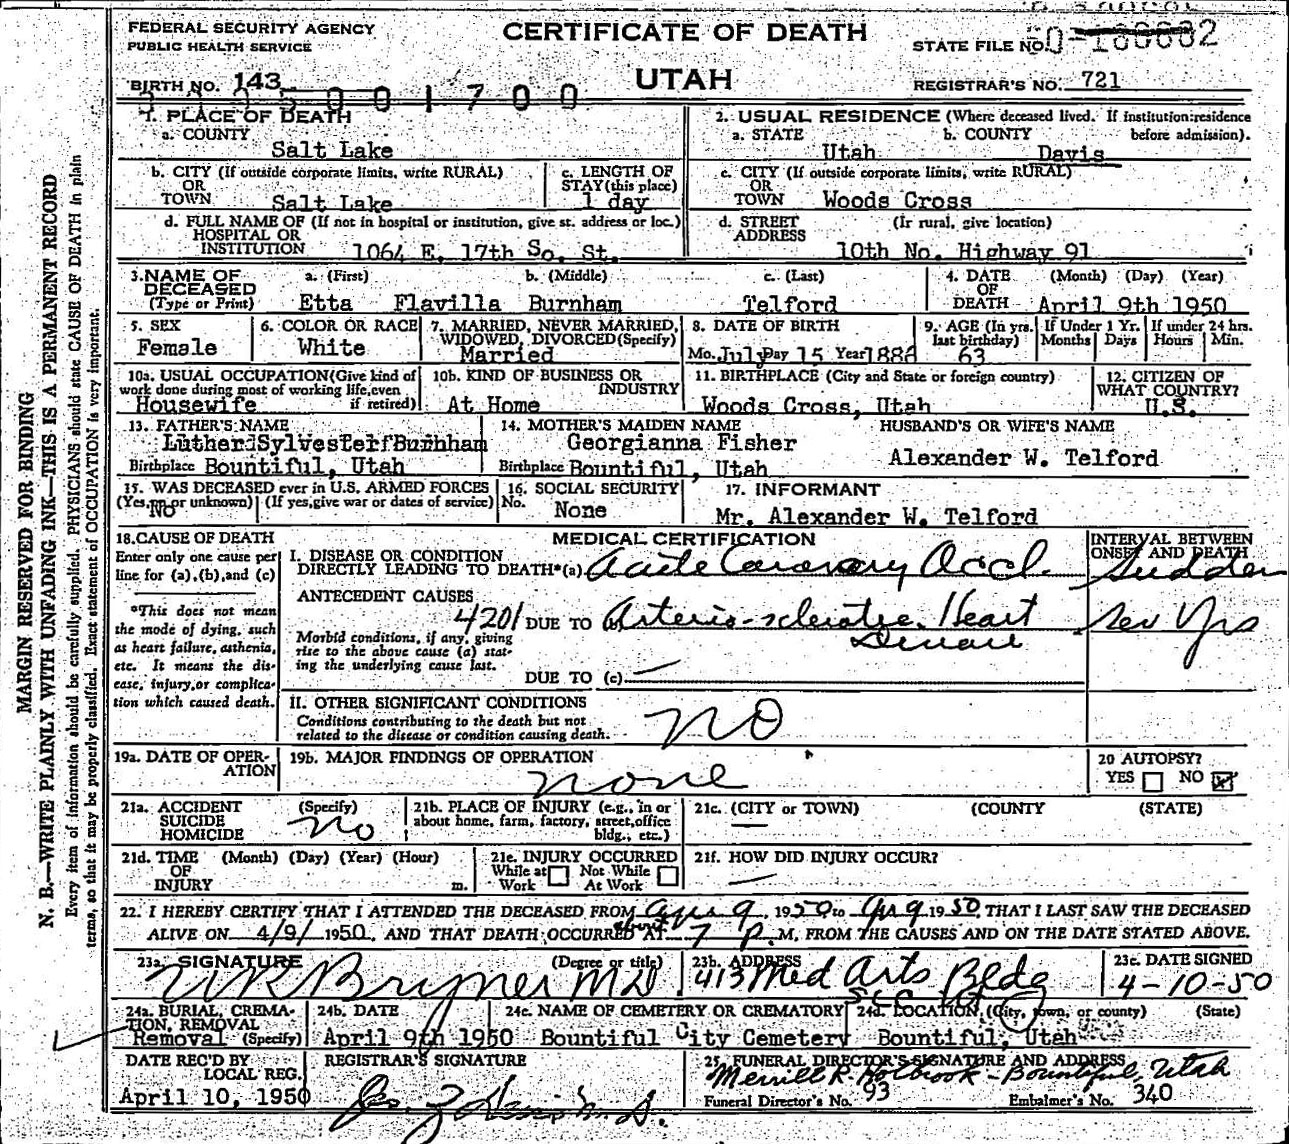 FEDERAL SECURITY AGENCY
PUBLIC HEALTH SERVICE
CERTIFICATE OF DEATH
STATE FILE NO.
BIRTH NO. 143
UTAH
REGISTRAR'S NO. 721
1. PLACE OF DEATH
a. COUNTY
Salt Lake
2. USUAL RESIDENCE (Where deceased lived. If institution:residence before admission).
a. STATE b. COUNTY
Utah Davis
b. CITY (If outside corporate limits, write RURAL)
OR
TOWN Salt Lake
c. LENGTH OF
STAY (this place)
1 day
c. CITY (If outside corporate limits, write RURAL)
OR
TOWN Woods Cross
d. FULL NAME OF (If not in hospital or institution, give st. address or loc.)
HOSPITAL OR
INSTITUTION 1064 E. 17th So. St.
d. STREET (If rural, give location)
ADDRESS
10th No. Highway 91
3. NAME OF DECEASED (Type or Print)
a. (First) b. (Middle) c. (Last)
Etta Flavilla Burnham Telford
4. DATE OF DEATH (Month) (Day) (Year)
April 9th 1950
5. SEX
Female
6. COLOR OR RACE
White
7. MARRIED, NEVER MARRIED,
WIDOWED, DIVORCED (Specify)
Married
8. DATE OF BIRTH
Mo. July Day 15 Year 1886
9. AGE (In yrs. last birthday)
63
If Under 1 Yr. Months Days
If under 24 hrs. Hours Min.
10a. USUAL OCCUPATION (Give kind of
work done during most of working life, even
if retired)
Housewife
10b. KIND OF BUSINESS OR
INDUSTRY
At Home
11. BIRTHPLACE (City and State or foreign country)
Woods Cross, Utah
12. CITIZEN OF
WHAT COUNTRY?
U.S.
13. FATHER'S NAME
Luther Sylvester Burnham
Birthplace Bountiful, Utah
14. MOTHER'S MAIDEN NAME
Georgianna Fisher
Birthplace Bountiful, Utah
HUSBAND'S OR WIFE'S NAME
Alexander W. Telford
15. WAS DECEASED ever in U.S. ARMED FORCES
(Yes, no or unknown) (If yes, give war or dates of service)
No
16. SOCIAL SECURITY
No. None
17. INFORMANT
Mr. Alexander W. Telford
18. CAUSE OF DEATH
Enter only one cause per
line for (a), (b), and (c)
*This does not mean
the mode of dying, such
as heart failure, asthenia,
etc. It means the dis-
ease, injury, or complica-
tion which caused death.
MEDICAL CERTIFICATION
I. DISEASE OR CONDITION
DIRECTLY LEADING TO DEATH*(a) Acute Coronary Occl.
INTERVAL BETWEEN
ONSET AND DEATH
Sudden
ANTECEDENT CAUSES
4201 DUE TO Arterio-sclerotic Heart
Disease
Sev Yrs
Morbid conditions, if any, giving
rise to the above cause (a) stat-
ing the underlying cause last.
DUE TO (c)
II. OTHER SIGNIFICANT CONDITIONS
Conditions contributing to the death but not
related to the disease or condition causing death.
NO
19a. DATE OF OPER-
ATION
19b. MAJOR FINDINGS OF OPERATION
none
20 AUTOPSY?
YES NO
21a. ACCIDENT (Specify)
SUICIDE
HOMICIDE
no
21b. PLACE OF INJURY (e.g., in or
about home, farm, factory, street, office
bldg., etc.)
21c. (CITY or TOWN) (COUNTY) (STATE)
21d. TIME (Month) (Day) (Year) (Hour)
OF
INJURY m.
21e. INJURY OCCURRED
While at Not While
Work At Work
21f. HOW DID INJURY OCCUR?
22. I HEREBY CERTIFY THAT I ATTENDED THE DECEASED FROM Apr 9, 1950 to Apr 9 1950 THAT I LAST SAW THE DECEASED
ALIVE ON 4/9/1950, AND THAT DEATH OCCURRED about AT 7 P.M, FROM THE CAUSES AND ON THE DATE STATED ABOVE.
23a. SIGNATURE (Degree or title)
Bryner MD
23b. ADDRESS
413 Med Arts Bldg
23c. DATE SIGNED
4-10-50
24a. BURIAL, CREMA-
TION, REMOVAL
Removal (Specify)
24b. DATE
April 9th 1950
24c. NAME OF CEMETERY OR CREMATORY
Bountiful City Cemetery
24d. LOCATION (City, town, or county) (State)
Bountiful, Utah
DATE REC'D BY
LOCAL REG.
April 10, 1950
REGISTRAR'S SIGNATURE
25. FUNERAL DIRECTOR'S SIGNATURE AND ADDRESS
Merrill R. Holbrook - Bountiful, Utah
Funeral Director's No. 93 Embalmer's No. 340
MARGIN RESERVED FOR BINDING
N. B.—WRITE PLAINLY WITH UNFADING INK—THIS IS A PERMANENT RECORD
Every item of information should be carefully supplied. PHYSICIANS should state CAUSE OF DEATH in plain
terms, so that it may be properly classified. Exact statement of OCCUPATION is very important.